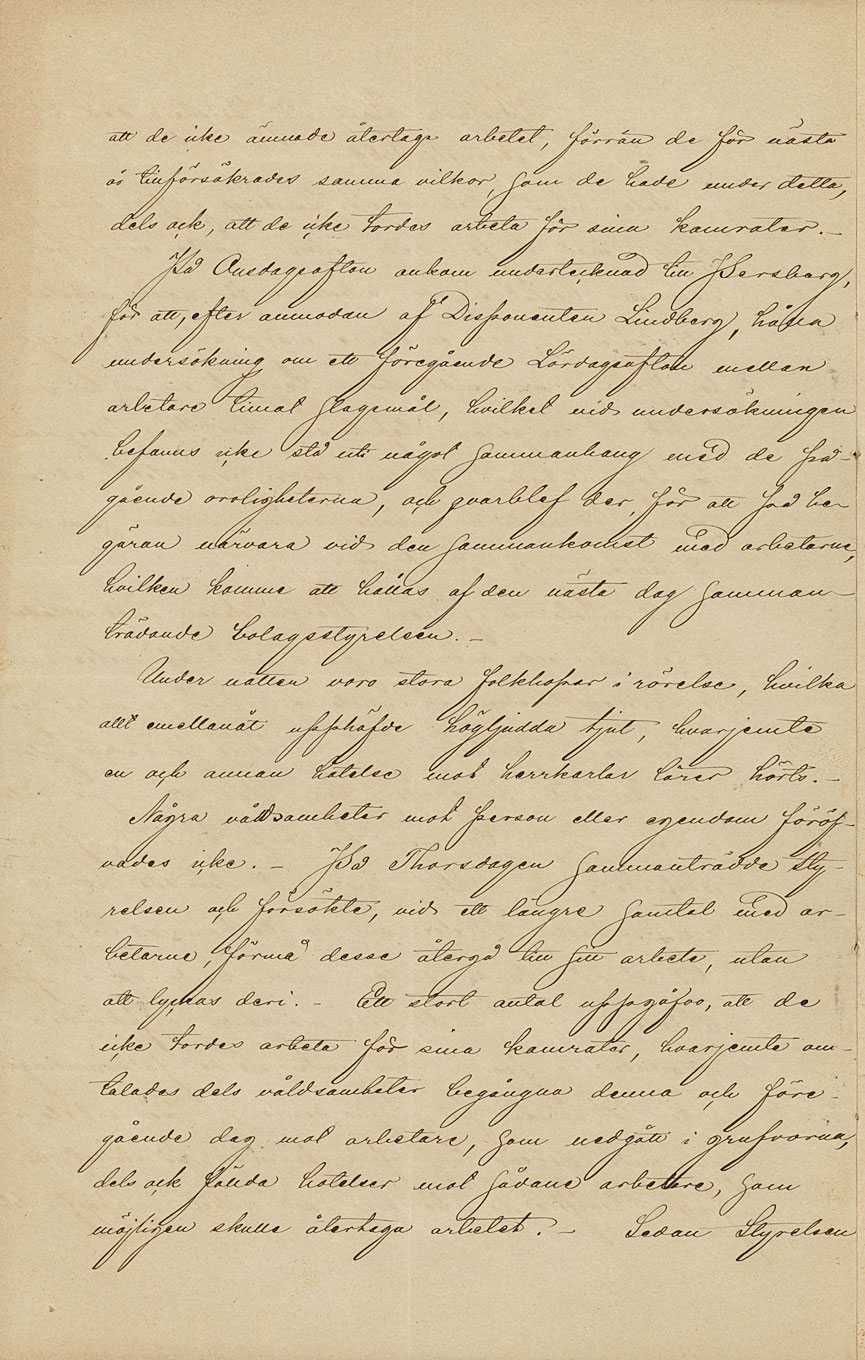 att de icke ämnade återtaga arbetet, förrän de för nästa
år tillförsäkrades samma vilkor, som de hade under detta,
dels ock, att de icke tordes arbeta för sina kamrater. –
På Onsdagsafton ankom undertecknad till Persberg,
för att, efter anmodan af Disponenten Lindberg, hålla
undersökning om ett föregående Lördagsafton mellan
arbetare timat slagsmål, hvilket vid undersökningen
befanns icke stå uti något sammanhang med de på-
gående oroligheterna, och qvarblef der, för att på be-
gäran närvara vid den sammankomst med arbetarne,
hvilken komme att hållas af den nästa dag samman-
trädande bolagsstyrelsen. –
Under natten voro stora folkhopar i rörelse, hvilka
allt emellanåt upphäfde högljudda tjut, hvarjemte
en och annan hotelse mot herrkarlar lärer hörts. –
Några våldsamheter mot person eller egendom föröf-
vades icke. – På Thorsdagen sammanträdde sty-
relsen och försökte, vid ett längre samtal med ar-
betarne, förmå desse återgå till sitt arbete, utan
att lyckas deri. – Ett stort antal uppgåfvo, att de
icke tordes arbeta för sina kamrater, hvarjemte om-
talades dels våldsamheter begångna denna och före-
gående dag mot arbetare, som nedgått i grufvorna,
dels ock fällda hotelser mot sådane arbetare, som
möjligen skulle återtaga arbetet. – Sedan Styrelsen